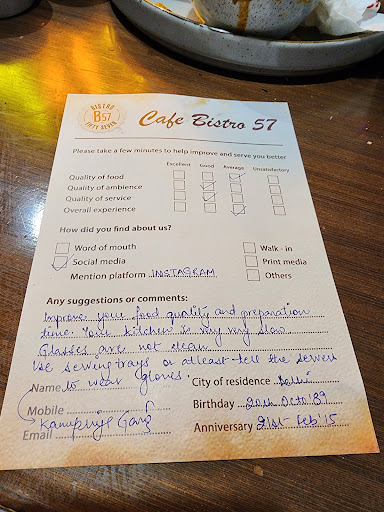 BISTRO
B57
FIFTY SEVEN
Cafe Bistro 57
Please take a few minutes to help improve and serve you better
Excellent Good Average Unsatisfactory
Quality of food
Quality of ambience
Quality of service
Overall experience
How did you find about us?
Word of mouth Walk - in
Social media Print media
Mention platform INSTAGRAM Others
Any suggestions or comments:
Improve your food quality and preparation
time. Your kitchen is very very slow
Glasses are not clean
Use serving trays or atleast tell the servers
to wear gloves.
Name City of residence Delhi
Mobile Birthday 20th Octo'89
Garg
Email Anniversary 21st Feb'15